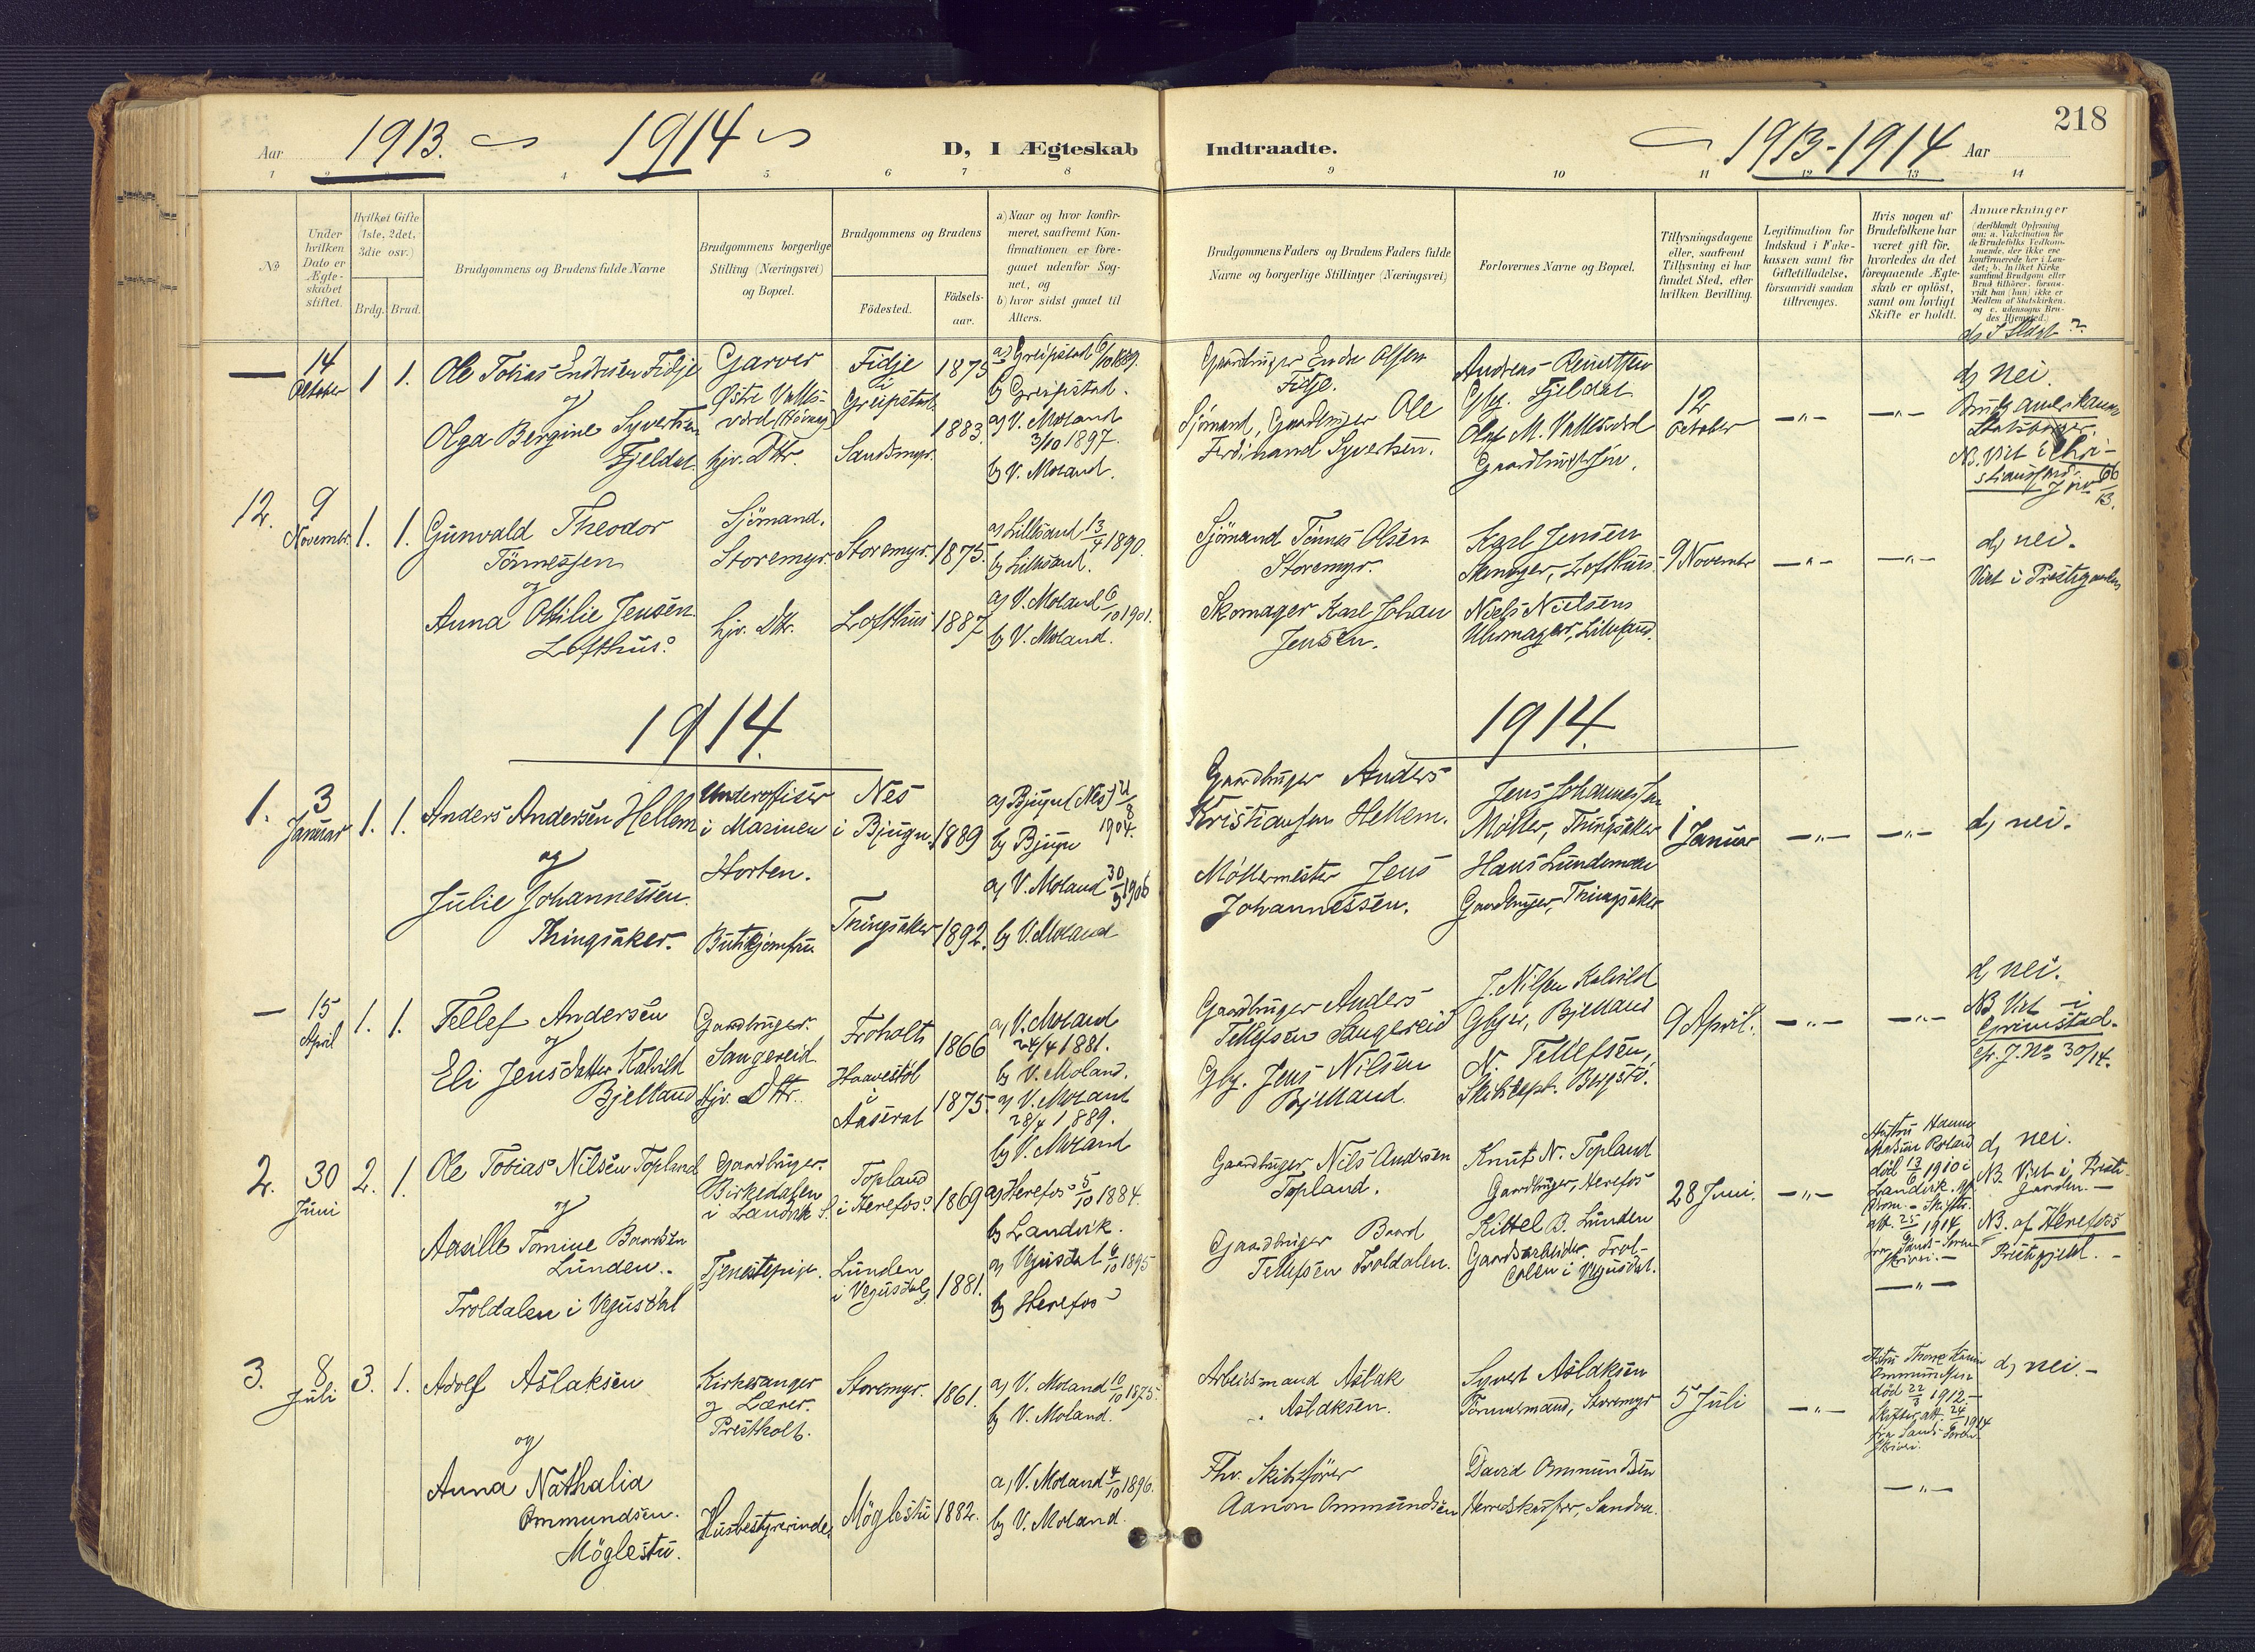 1913. 1914 D, I Ægteskab Indtraadte. 1913-1914 Aar 218
Aar
1 2 3 4 5 6 7 8 9 10 11 12 13 14
No
Under hvilken Dato er Ægteskabet stiftet.
Hvilket Gifte (1ste, 2det, 3die osv.)
Brdg. Brud.
Brudgommens og Brudens fulde Navne
Brudgommens borgerlige Stilling (Næringsvei) og Bopæl.
Brudgommens og Brudens
Födested.
Födselsaar.
a) Naar og hvor konfirmeret, saafremt Konfirmationen er foregaaet udenfor Sognet, og
b) hvor sidst gaaet til Alters.
Brudgommens Faders og Brudens Faders fulde Navne og borgerlige Stillinger (Næringsvei)
Forlovernes Navne og Bopæl.
Tillysningsdagene eller, saafremt Tillysning ei har fundet Sted, efter hvilken Bevilling.
Legitimation for Indskud i Enkekassen samt for Giftetilladelse, forsaavidt saadan tiltrænges.
Hvis nogen af Brudefolkene har været gift för, hvorledes da det foregaaende Ægteskab er oplöst, samt om lovligt Skifte er holdt.
Anmærkninger (deriblandt Oplysning om: a. Vakcination for de Brudefolks Vedkommende, der ikke ere konfirmerede her i Landet; b. hvilket Kirkesamfund Brudgom eller Brud tilhörer, forsaavidt han (hun) ikke er Medlem af Statskirken. og c. udensogns Brudes Hjemsted.)
d) I Slægt?
— 14 Oktober 1 1.
Ole Tobias Endresen Fidje
og
Olga Bergine Syvertsen
Fjeldal
Garver
Østre Valles-
verd (Hövag)
hjv. Dtr.
Fidje
i
Greipstad
Sandsmyr.
1875
1883.
a) Greipstad 6/10 1889.
b) Greipstad.
a) V. Moland
3/10 1897.
b) V. Moland.
Gaardbruger Endre Olsen
Fidje.
Sjömand, Gaardbruger Ole
Ferdinand Syvertsen.
Gbr. Fjeldal
Olaf M. Vallesverd
12
October
—"— —"—
d) nei.
Brudg. amerikansk
Statsborger.
NB. Viet i Chri-
stianssand
12. 9 November 1. 1.
Gunvald Theodor
Tönnessen
og
Anna Ottilie Jensen
Lofthus.
Sjömand.
Storemyr.
hjv. Dtr.
Storemyr.
Lofthus
1875.
1887
a) Lillesand 13/4 1890.
b) Lillesand.
a) V. Moland 6/10 1901.
b) V. Moland.
Sjömand Tönnes Olsen
Storemyr.
Skomager Karl Johan
Jensen.
Karl Jensen
Skomager, Lofthus.
Niels Nielsen
Uhrmager, Lillesand.
9 November
—"— —"—
d) nei.
Viet i Prestegaarden
1914. 1914.
1. 3 Januar 1. 1.
Anders Andersen Hellem
og
Julie Johannessen
Thingsaker.
Underofficer
i Marinen
Horten.
Butikjomfru
Nes
i Bjugn.
Thingsaker
1889
1892.
a) Bjugn (Nes) 21/8 1904.
b) Bjugn
a) V. Moland 30/9 1906
b) V. Moland
Gaardbruger Anders
Kristiansen Hellem.
Möllermester Jens
Johannessen.
Jens Johannessen
Möller, Thingsaker
Hans Lundeman
Gaardbruger, Thingsaker
1 Januar
—"— —"—
d) nei.
— 15 April 1. 1.
Tellef Andersen
og
Eli Jensdatter Kalvild
Bjelland
Gaardbruger.
Sangereid
Hjv. Dtr.
Froholt
Haavestöl
i
Aaseral
1866
1875.
a) V. Moland
24/4 1881.
b) V. Moland.
a) V. Moland
28/4 1889.
b) V. Moland
Gaardbruger Anders
Tellefsen Sangereid
Gbr. Jens Nilsen
Bjelland.
J. Nilsen Kalvild
Gbr, Bjelland
N. Tellefsen,
9 April.
—"— —"—
d) nei.
NB Viet i
Grimstad.
cfr. J. No 30/14.
2. 30 Juni 2. 1.
Ole Tobias Nilsen Topland
og
Aasille Tomine Baardsen
Lunden.
Troldalen i Vegusdal
Gaardbruger.
Birkedalen
i Landvik S.
Tjenestepige.
Topland
i Herefos.
Lunden
i Vegusdal S.
1869
1881.
a) Herefos 5/10 1884.
b) Landvik.
a) Vegusdal 6/10 1895
b) Herefos
Gaardbruger Nils Andersen
Topland.
Gaardbruger Baard
Tellefsen Troldalen.
Knut N. Topland
Gaardbruger, Herefos
Kittel B. Lunden
Gaardsarbeider. Trol-
dalen i Vegusdal.
28 Juni.
—"—
Hustru Hanna
död 13/6 1910 i
Landvik.
—"—
d) nei.
NB. Viet i Preste-
gaarden.
NB. af Herefos
Prestegjeld.
3. 8 Juli 3. 1.
Adolf Aslaksen
og
Anna Nathalia
Ommundsen.
Möglestu.
Kirkesanger
og Lærer.
Prestholt.
Husbestyrerinde.
Storemyr.
Möglestu
1861.
1882.
a) V. Moland 10/10 1875.
b) V. Moland.
a) V. Moland 4/10 1896.
b) V. Moland.
Arbeidsmand Aslak
Aslaksen.
Fhv. Skibsförer
Aanon Ommundsen
Syvert Aslaksen
Tömmermand, Storemyr
David Ommundsen
Herredskasserer, Sandva.
5 Juli
—"—
Ommundsen
död 22/8 1912.
Skifteatt. 24/6 1914
fra Sands Soren-
skriveri.
—"—
d) nei.